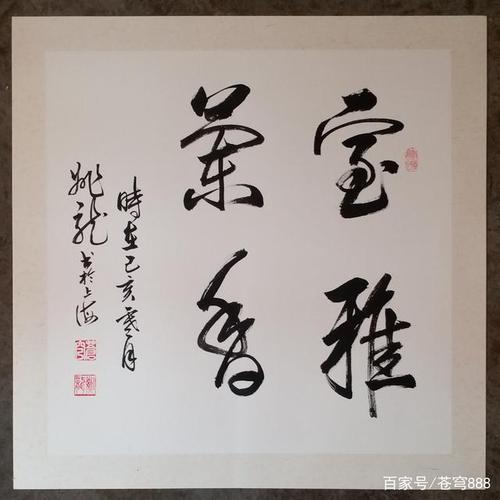 室雅
蘭香
時在己亥月
姚龍書於上海
百家号/苍穹888